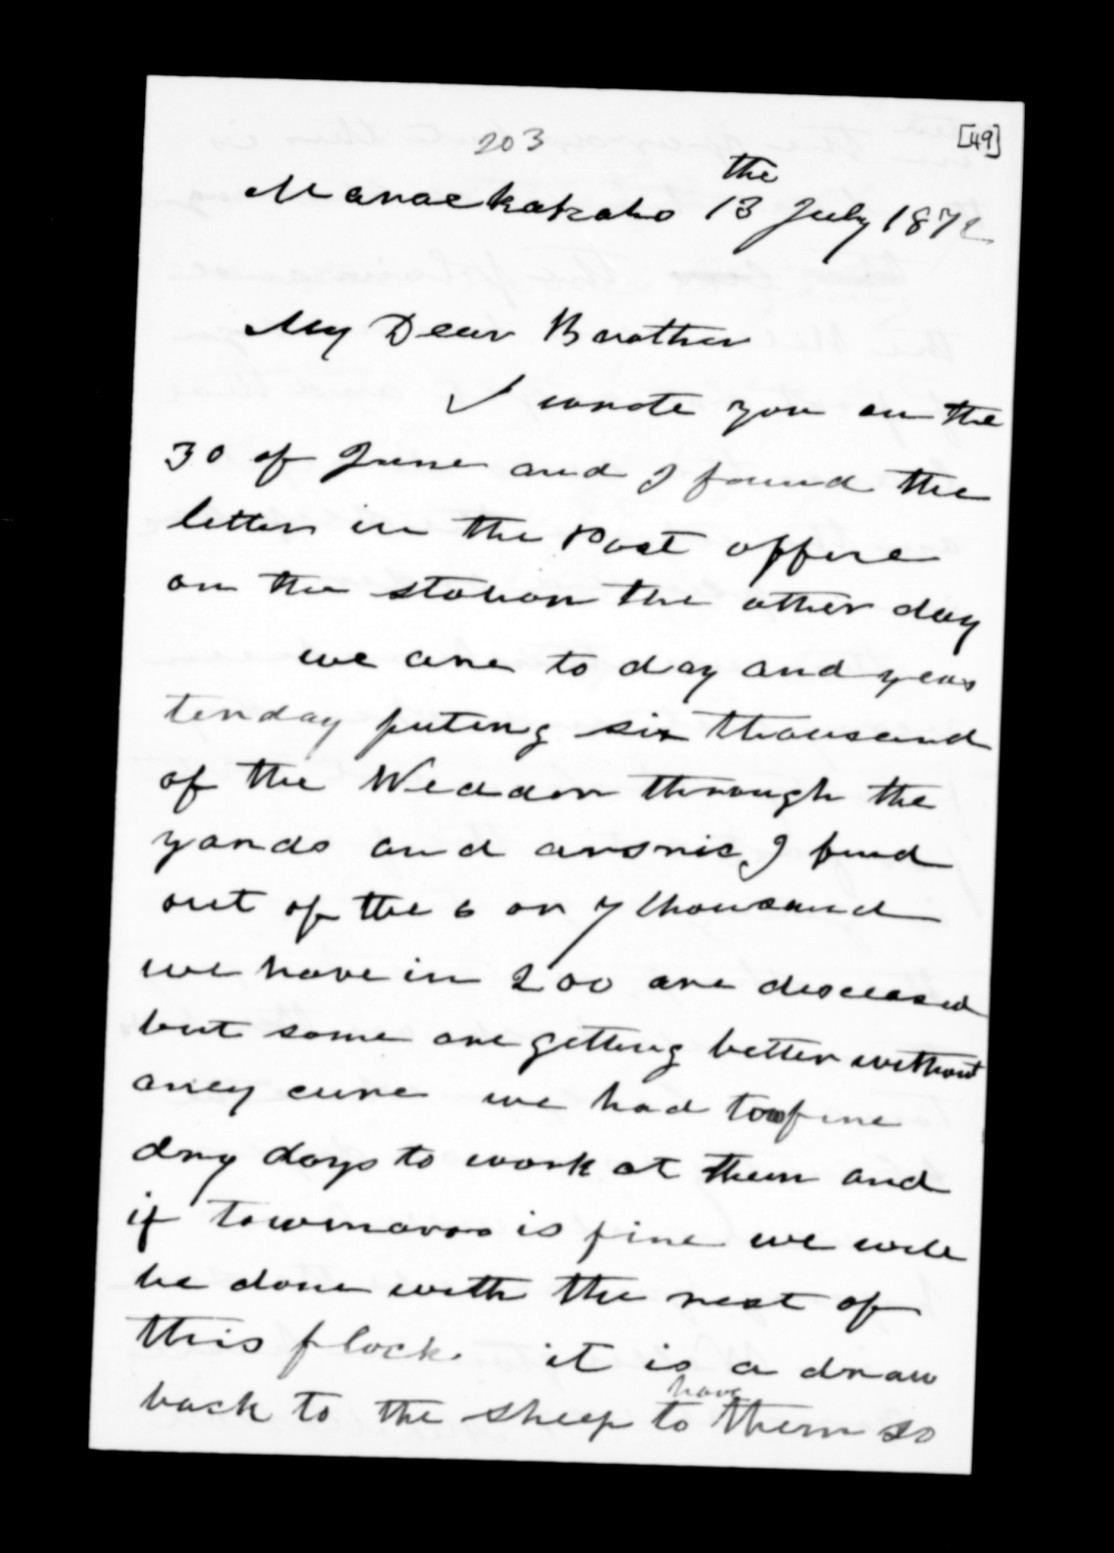 [49]
203
the
Manaekakaho 13 July 1872
My Dear Brother
I wrote you on the
30 of June and I found the
letter in the Post offire
on the station the other day
we are to day and yeas
terday puting six thousand
of the Weddor through the
yards and arsnic I find
out of the 6 or 7 thousand
we have in 200 are deseased
but some are getting better without
aney cure we had tow fine
dry days to work at them and
if towmaroo is fine we will
be done with the rest of
this flock. it is a draw
have
back to the sheep to them so